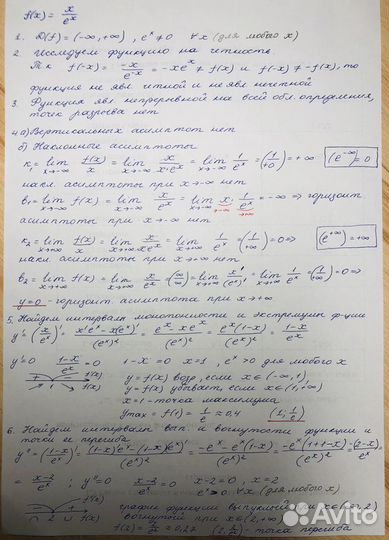 f(x) = x/e^x
1. D(f) = (-∞, +∞), e^x ≠ 0 ∀x (для любого x)
2. Исследуем функцию на четность
Т.к f(-x) = -x/e^-x = -xe^x ≠ f(x) и f(-x) ≠ -f(x), то
функция не явл. четной и не явл. нечетной
3. Функция явл. непрерывной на всей обл. определения,
точек разрыва нет
4 а) Вертикальных асимптот нет
б) Наклонные асимптоты
k₁ = lim x→-∞ f(x)/x = lim x→-∞ x/(x·e^x) = lim x→-∞ 1/e^x = (1/+0) = +∞ (e^-∞ = 0)
накл. асимптоты при x→-∞ нет
b₁ = lim x→-∞ f(x) = lim x→-∞ x/e^x = lim x→-∞ x · 1/e^x = -∞ ⇒ горизонт.
→-∞ →+∞
асимптоты при x→-∞ нет
k₂ = lim x→+∞ f(x)/x = lim x→+∞ x/(xe^x) = lim x→+∞ 1/e^x = (1/+∞) = 0 ⇒ (e^+∞ = +∞)
накл. асимптоты при x→+∞ нет
b₂ = lim x→+∞ f(x) = lim x→+∞ x/e^x = (∞/∞) = lim x→+∞ x'/(e^x)' = lim x→+∞ 1/e^x = (1/+∞) = 0 ⇒
y=0 - горизонт. асимптота при x→+∞
5. Найдем интервалы монотонности и экстремум ф-ции
y' = (x/e^x)' = (x'e^x - x(e^x)')/(e^x)² = (e^x - xe^x)/(e^x)² = e^x(1-x)/(e^x)² = (1-x)/e^x
y'=0 (1-x)/e^x = 0 1-x=0 x=1, e^x > 0 для любого x
+ - f'(x) y = f(x) возр, если x∈(-∞, 1)
1 f(x) y = f(x) убывает, если x∈(1, +∞)
x=1 - точка максимума
y max = f(1) = 1/e ≈ 0,4 (1; 1/e)
6. Найдем интервалы вып. и вогнутости функции и
точки ее перегиба
y'' = ((1-x)/e^x)' = ((1-x)'e^x - (1-x)(e^x)')/(e^x)² = (-e^x - e^x(1-x))/(e^x)² = -e^x(1+1-x)/(e^x)² = -(2-x)/e^x =
= (x-2)/e^x; y''=0 (x-2)/e^x = 0 x-2=0, x=2
e^x > 0 ∀x (для любого x)
- + f''(x) график функции выпуклый при x∈(-∞, 2)
2 f(x) вогнутый при x∈(2, +∞)
f(2) = 2/e² ≈ 0,27 (2, 2/e²) - точка перегиба
Avito